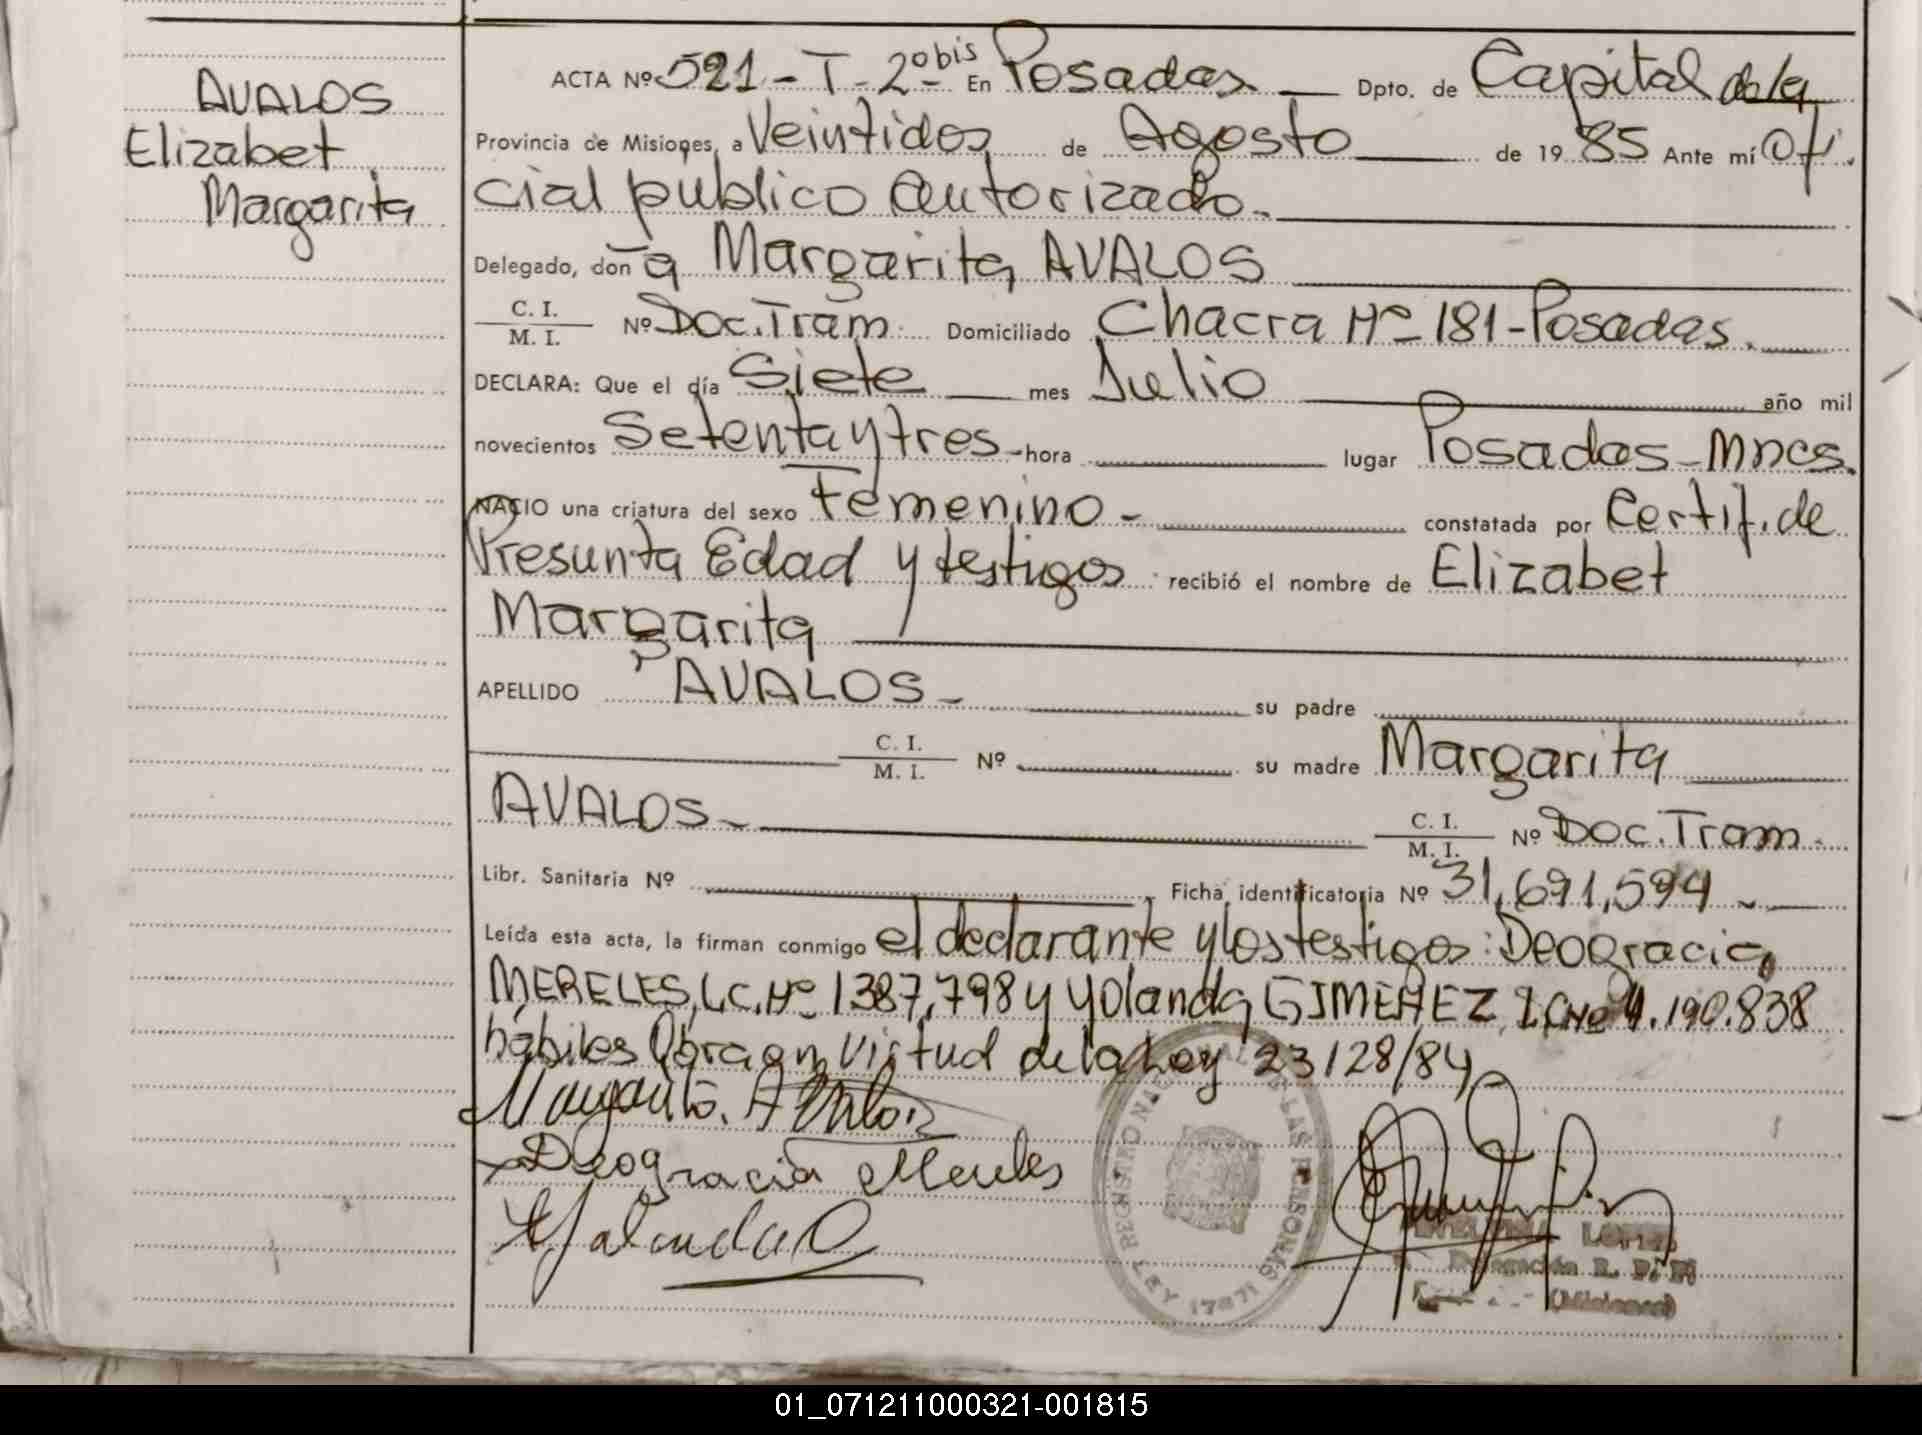 AVALOS
Elizabet
Margarita
ACTA Nº 521 - T - 2º bis En Posadas Dpto. de Capital de la
Provincia de Misiones, a Veintidos de Agosto de 19 85 Ante mí Ofi.
cial publico Autorizado.-
Delegado, don ̃a Margarita AVALOS
C. I.
M. I. Nº Doc. Tram. Domiciliado Chacra Nº 181 - Posadas.
DECLARA: Que el día Siete mes Julio año mil
novecientos Setenta y tres - hora lugar Posadas - Mnes.
NACIO una criatura del sexo Femenino - constatada por Certif. de
Presunta Edad y testigos recibió el nombre de Elizabet
Margarita
APELLIDO AVALOS - su padre
C. I.
M. I. Nº su madre Margarita
AVALOS - C. I.
M. I. Nº Doc. Tram.
Libr. Sanitaria Nº Ficha identificatoria Nº 31,691,594
Leída esta acta, la firman conmigo el declarante y los testigos: Deogracia
MERELES, L.C. Nº 1387,798 y Yolanda GIMENEZ L.C Nº 4.190.838
hábiles Obra en Virtud de la Ley 23128/84
Margarita Avalos
Deogracia Mereles
REGISTRO NACIONAL DE LAS PERSONAS
LEY 17671
LOPEZ
Delegación R. P.
(Misiones)
01_071211000321-001815